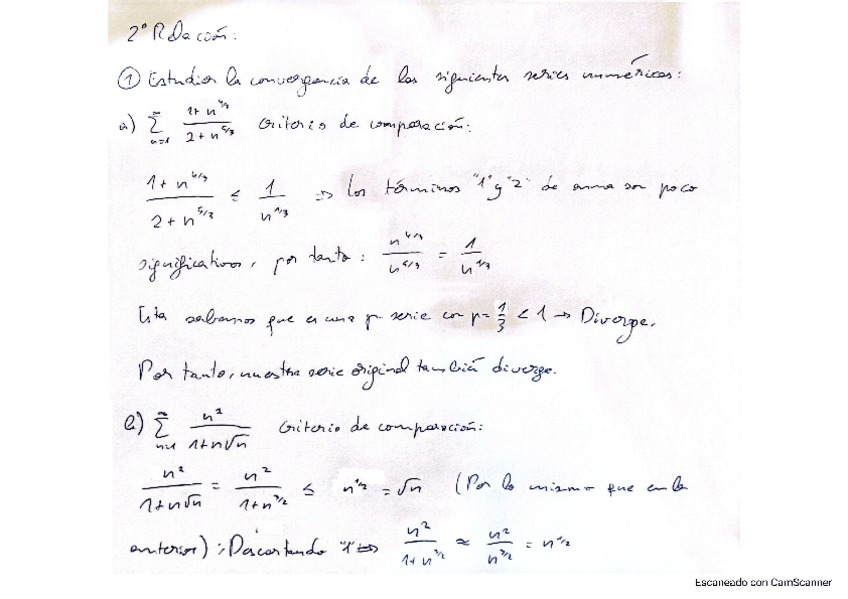 2º Relación:
① Estudiar la convergencia de las siguientes series numéricas:
a) ∑_{n=1}^{∞} (1+n^{4/3})/(2+n^{5/3}) Criterio de comparación:
(1+n^{4/3})/(2+n^{5/3}) ≤ 1/n^{1/3} ⇒ Los términos "1" y "2" de suma son poco
significativos, por tanto: n^{4/3}/n^{5/3} = 1/n^{1/3}
Esta sabemos que es una p-serie con p = 1/3 < 1 → Diverge.
Por tanto, nuestra serie original también diverge.
b) ∑_{n=1}^{∞} n²/(1+n√n) Criterio de comparación:
n²/(1+n√n) = n²/(1+n^{3/2}) ≤ n^{1/2} = √n (Por lo mismo que en la
anterior); Descartando "1" ⇒ n²/(1+n^{3/2}) ≈ n²/n^{3/2} = n^{1/2}
Escaneado con CamScanner